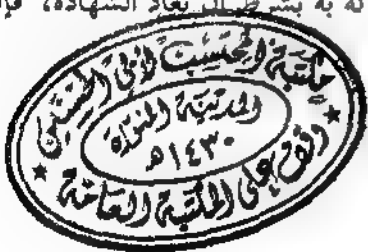 له به بشرط أن يعاد الشهادة، فإ
مكتبة المحتسب لأبي الحسنين
المدينة المنورة
١٤٣٠هـ
وقف على المكتبة العامة